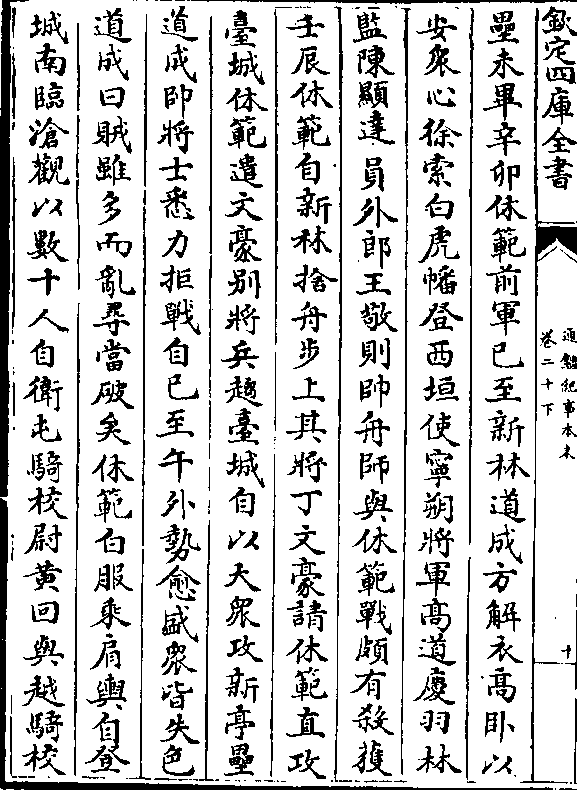 欽定四庫全書
通鑑紀事本末
卷二十下
十
壘未畢辛卯休範前軍已至新林道成方解衣高卧以
安衆心徐索白虎幡登西垣使寧朔將軍高道慶羽林
監陳顯達員外郎王敬則帥舟師與休範戰頗有殺獲
壬辰休範自新林捨舟步上其將丁文豪請休範直攻
臺城休範遣文豪别將兵趨臺城自以大衆攻新亭壘
道成帥將士悉力拒戰自巳至午外勢愈盛衆皆失色
道成曰賊雖多而亂尋當破矣休範白服乘肩輿自登
城南臨滄觀以數十人自衛屯騎校尉黄回與越騎校